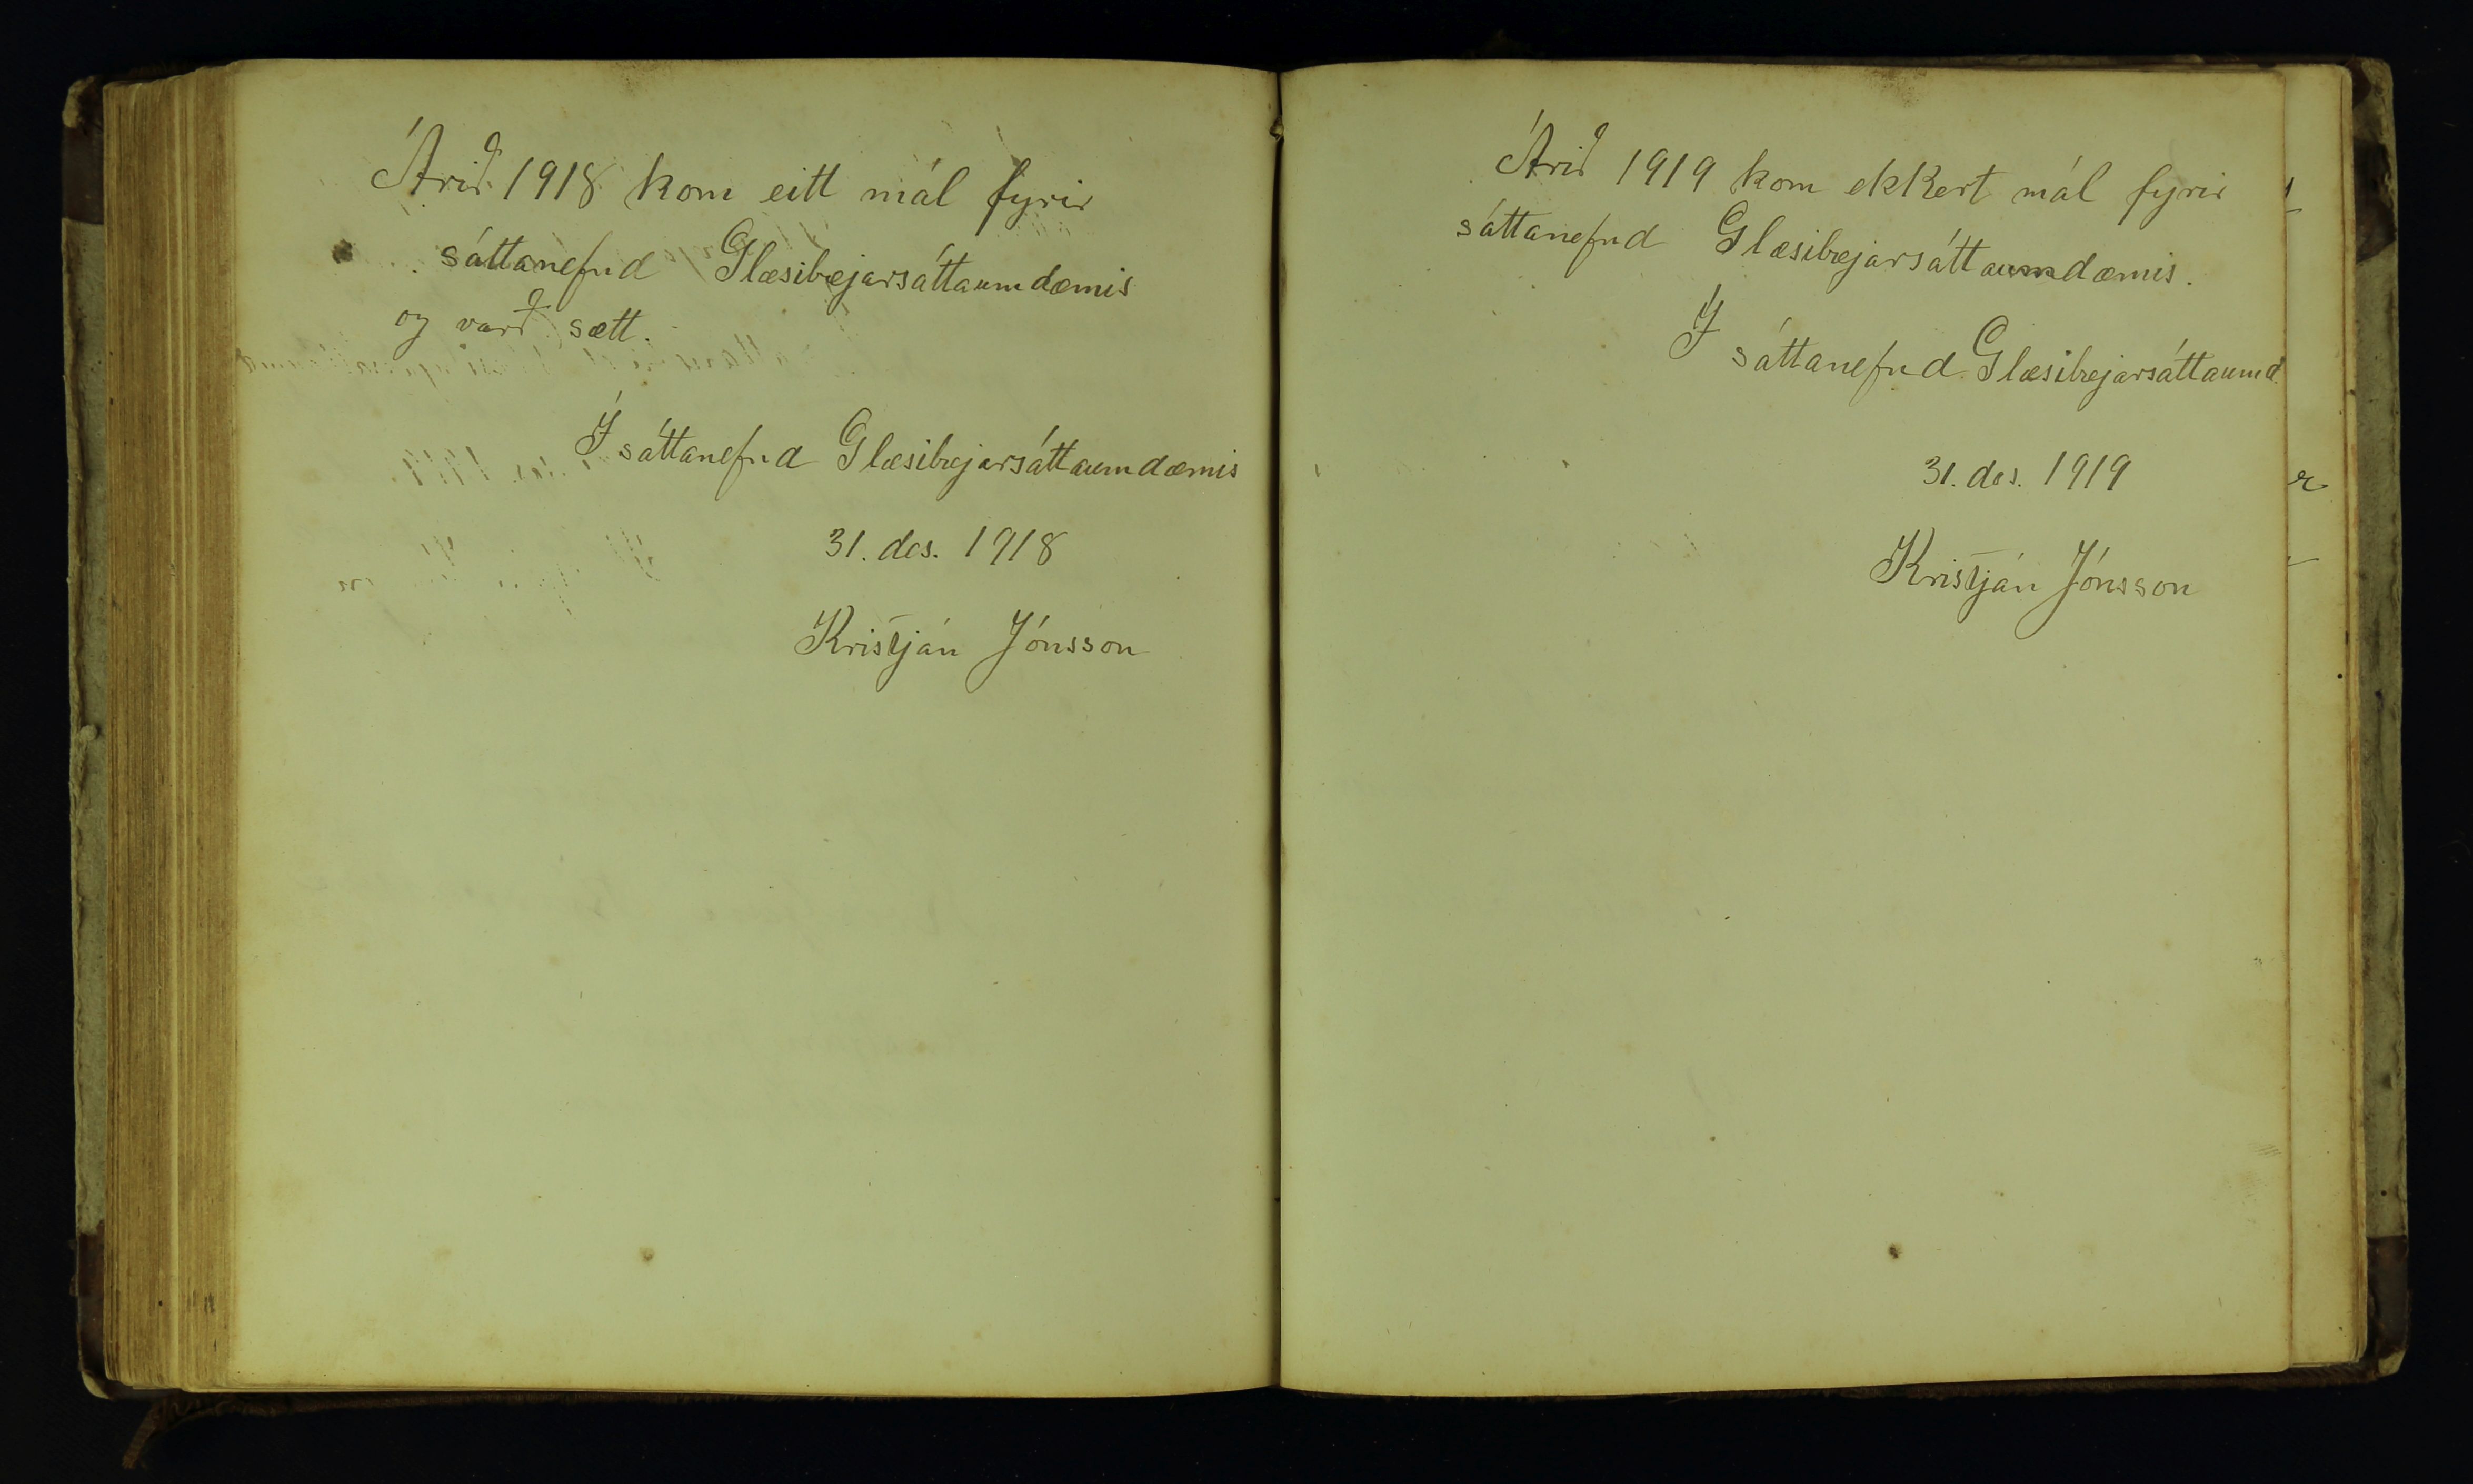 Árið 1918 kom eitt mál fyrir
sáttanefnd Glæsibæjarsáttaumdæmis
og varð sætt.
Í sáttanefnd Glæsibæjarsáttaumdæmis
31. des. 1918
Kristján Jónsson
Árið 1919 kom ekkert mál fyrir
sáttanefnd Glæsibæjarsáttaumdæmis.
Í sáttanefnd Glæsibæjarsáttaumd.
31. des. 1919
Kristján Jónsson